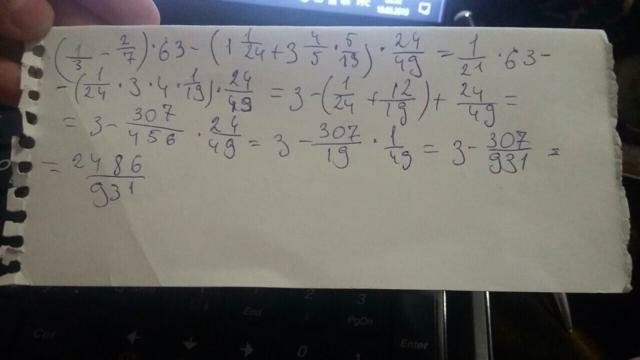 (1/3 - 2/7) · 63 - (1 1/24 + 3 4/5 · 5/19) · 24/49 = 1/21 · 63 -
- (1/24 · 3 · 4 · 1/19) · 24/49 = 3 - (1/24 + 12/19) + 24/49 =
= 3 - 307/456 · 24/49 = 3 - 307/19 · 1/49 = 3 - 307/931 =
= 2486/931
End
3
PgDn
Ctrl
0
1
Enter